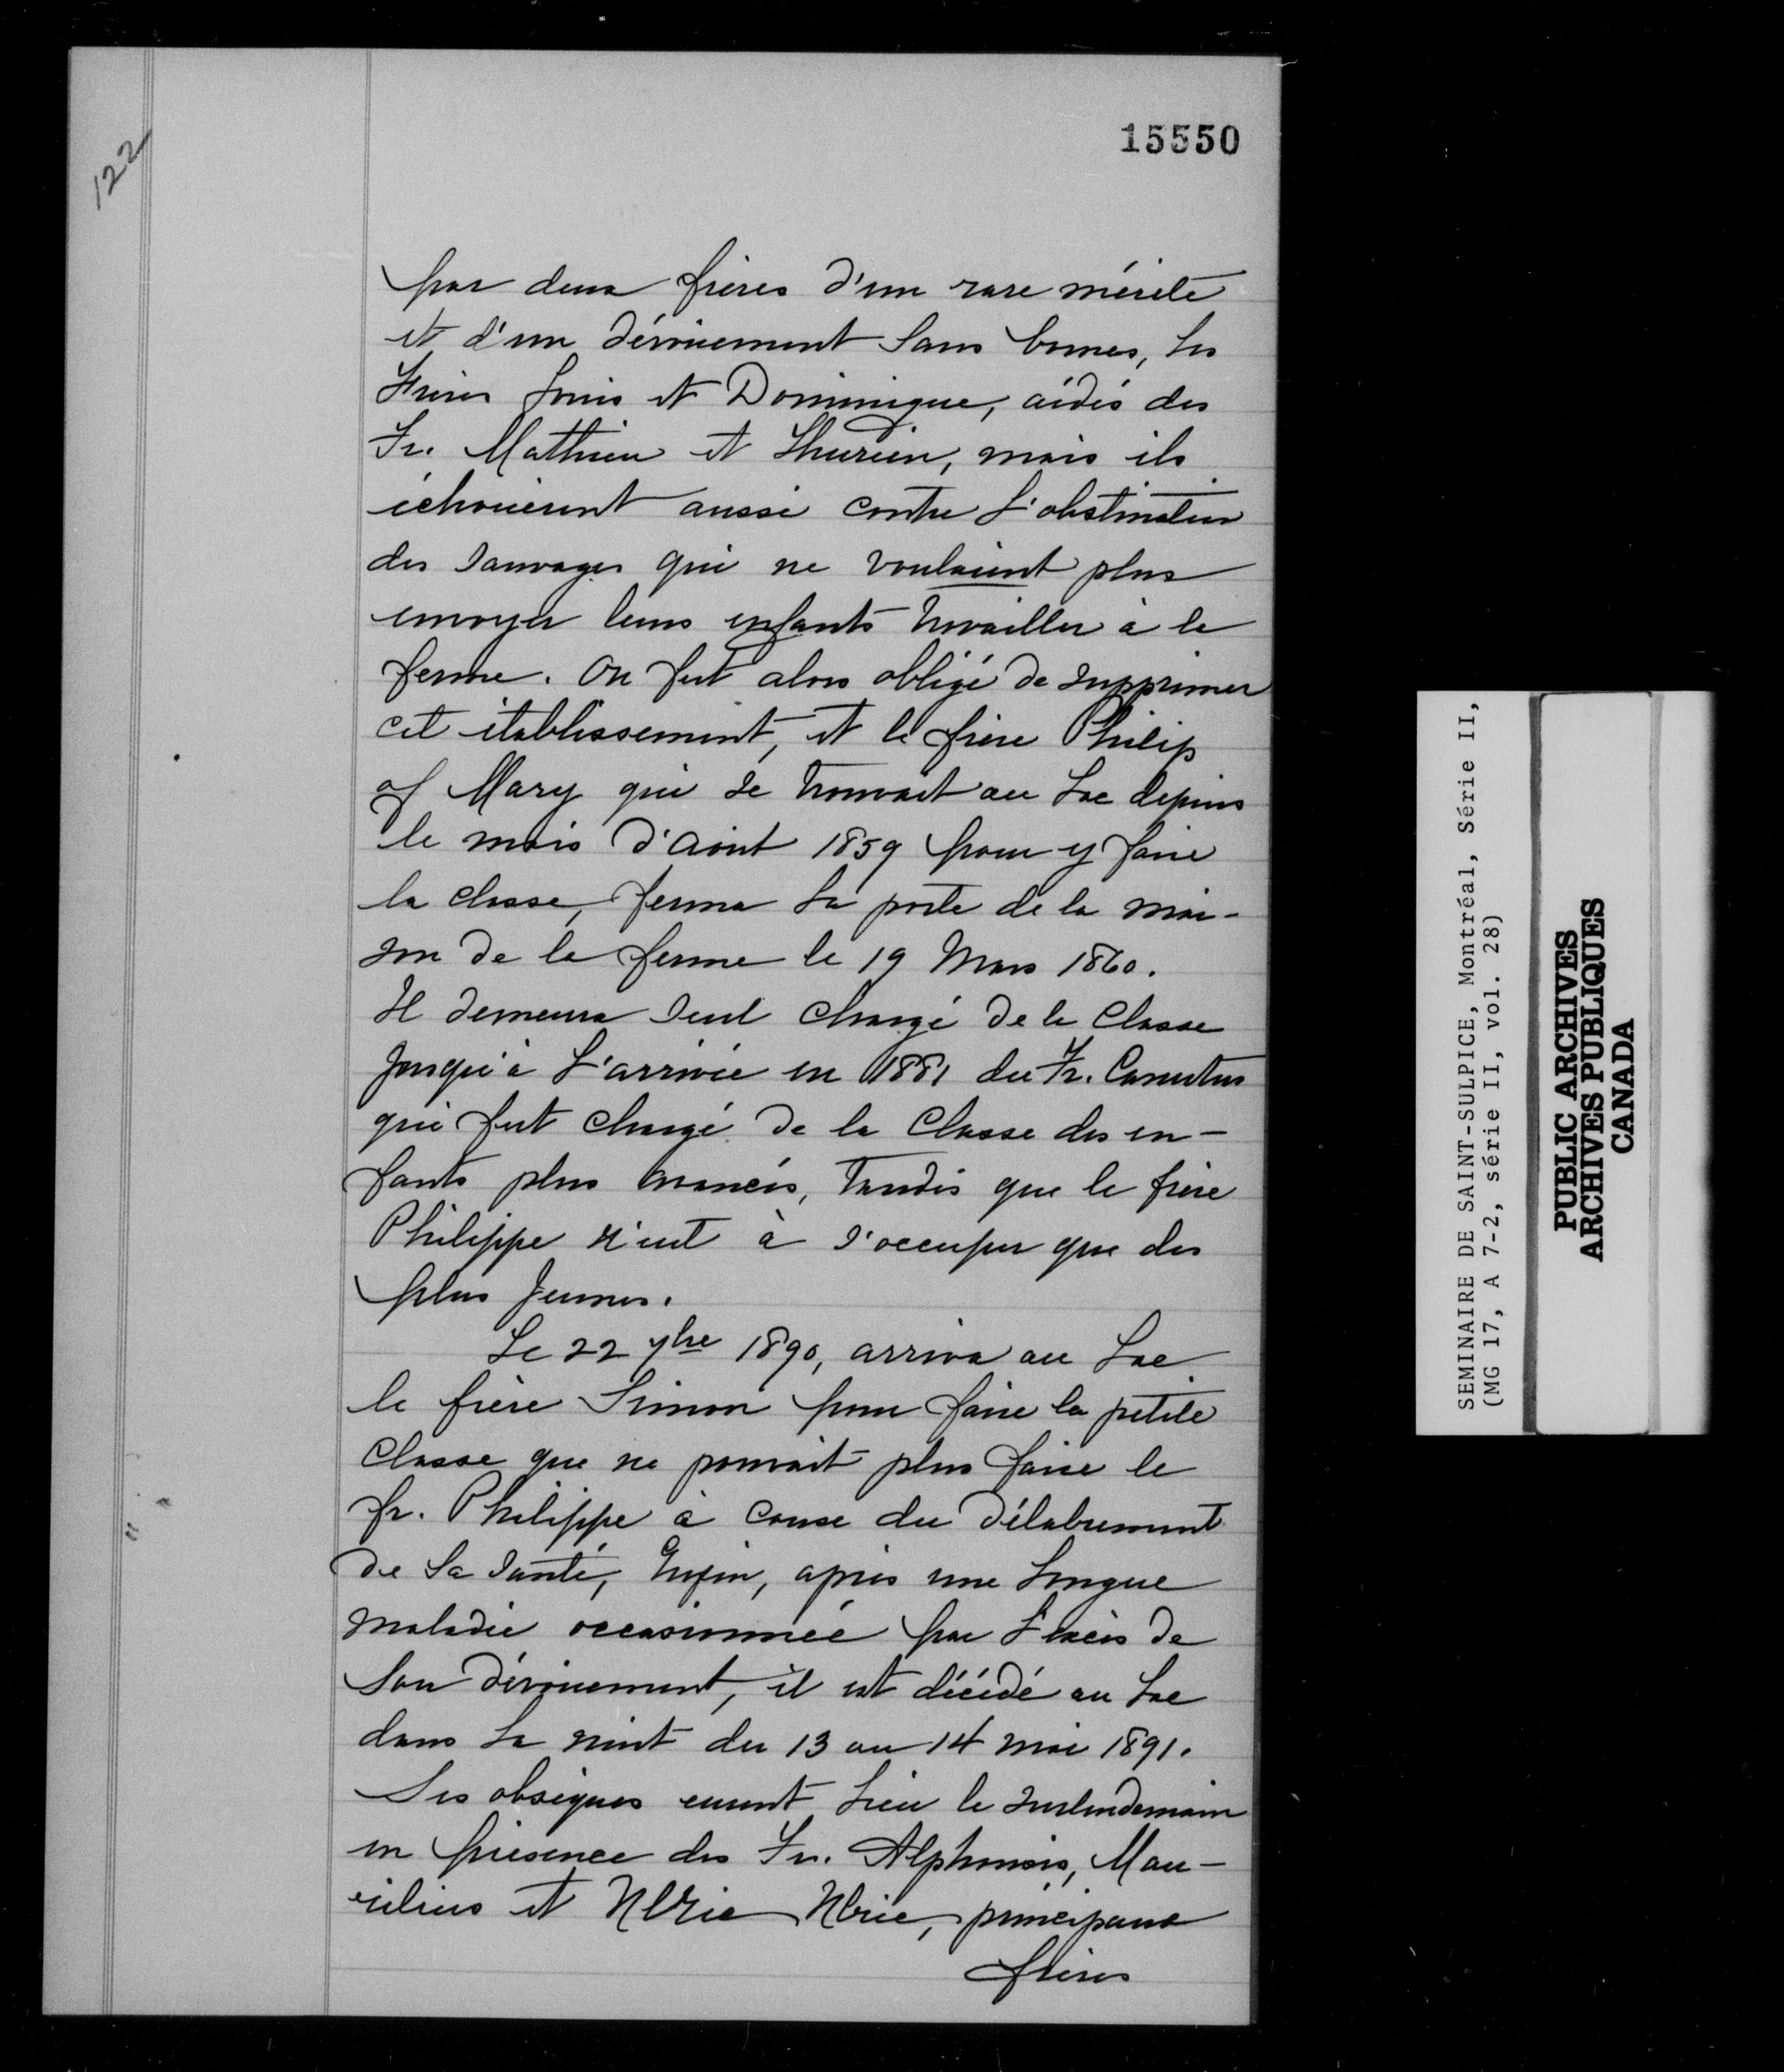 122
15550
par deux frères d'un rare mérite
et d'un dévouement sans bornes, les
Frères Louis et Dominique, aidés des
Fr. Mathieu et mais ils
échouèrent aussi contre l'obstination
des sauvages qui ne voulaient plus
envoyer leurs enfants travailler à la
ferme. On fut alors obligé de supprimer
cet établissement, et le frère Philip
of Mary qui se trouvait au Lac depuis
le mois d'août 1859 pour y faire
la classe, ferma la porte de la mai-
son de la ferme le 19 Mars 1860.
Il demeura seul chargé de la Classe
jusqu'à l'arrivée en 1881 du Fr. Canutus
qui fut chargé de la Classe des en-
fants plus avancés, tandis que le frère
Philippe n'eut à s'occuper que des
plus jeunes.
Le 22 7bre 1890, arriva au Lac
le frère Simon pour faire la petite
Classe que ne pouvait plus faire le
fr. Philippe à cause du délabrement
de sa santé, Enfin, après une longue
maladie occasionnée par l'excès de
son dévouement, il est décédé au Lac
dans la nuit du 13 au 14 mai 1891.
Ses obsèques eurent lieu le surlendemain
en présence des Fr. Alphonsis, Mau-
rilius et principaux
frères
SEMINAIRE DE SAINT-SULPICE, Montréal, Série II,
(MG 17, A 7-2, série II, vol. 28)
PUBLIC ARCHIVES
ARCHIVES PUBLIQUES
CANADA